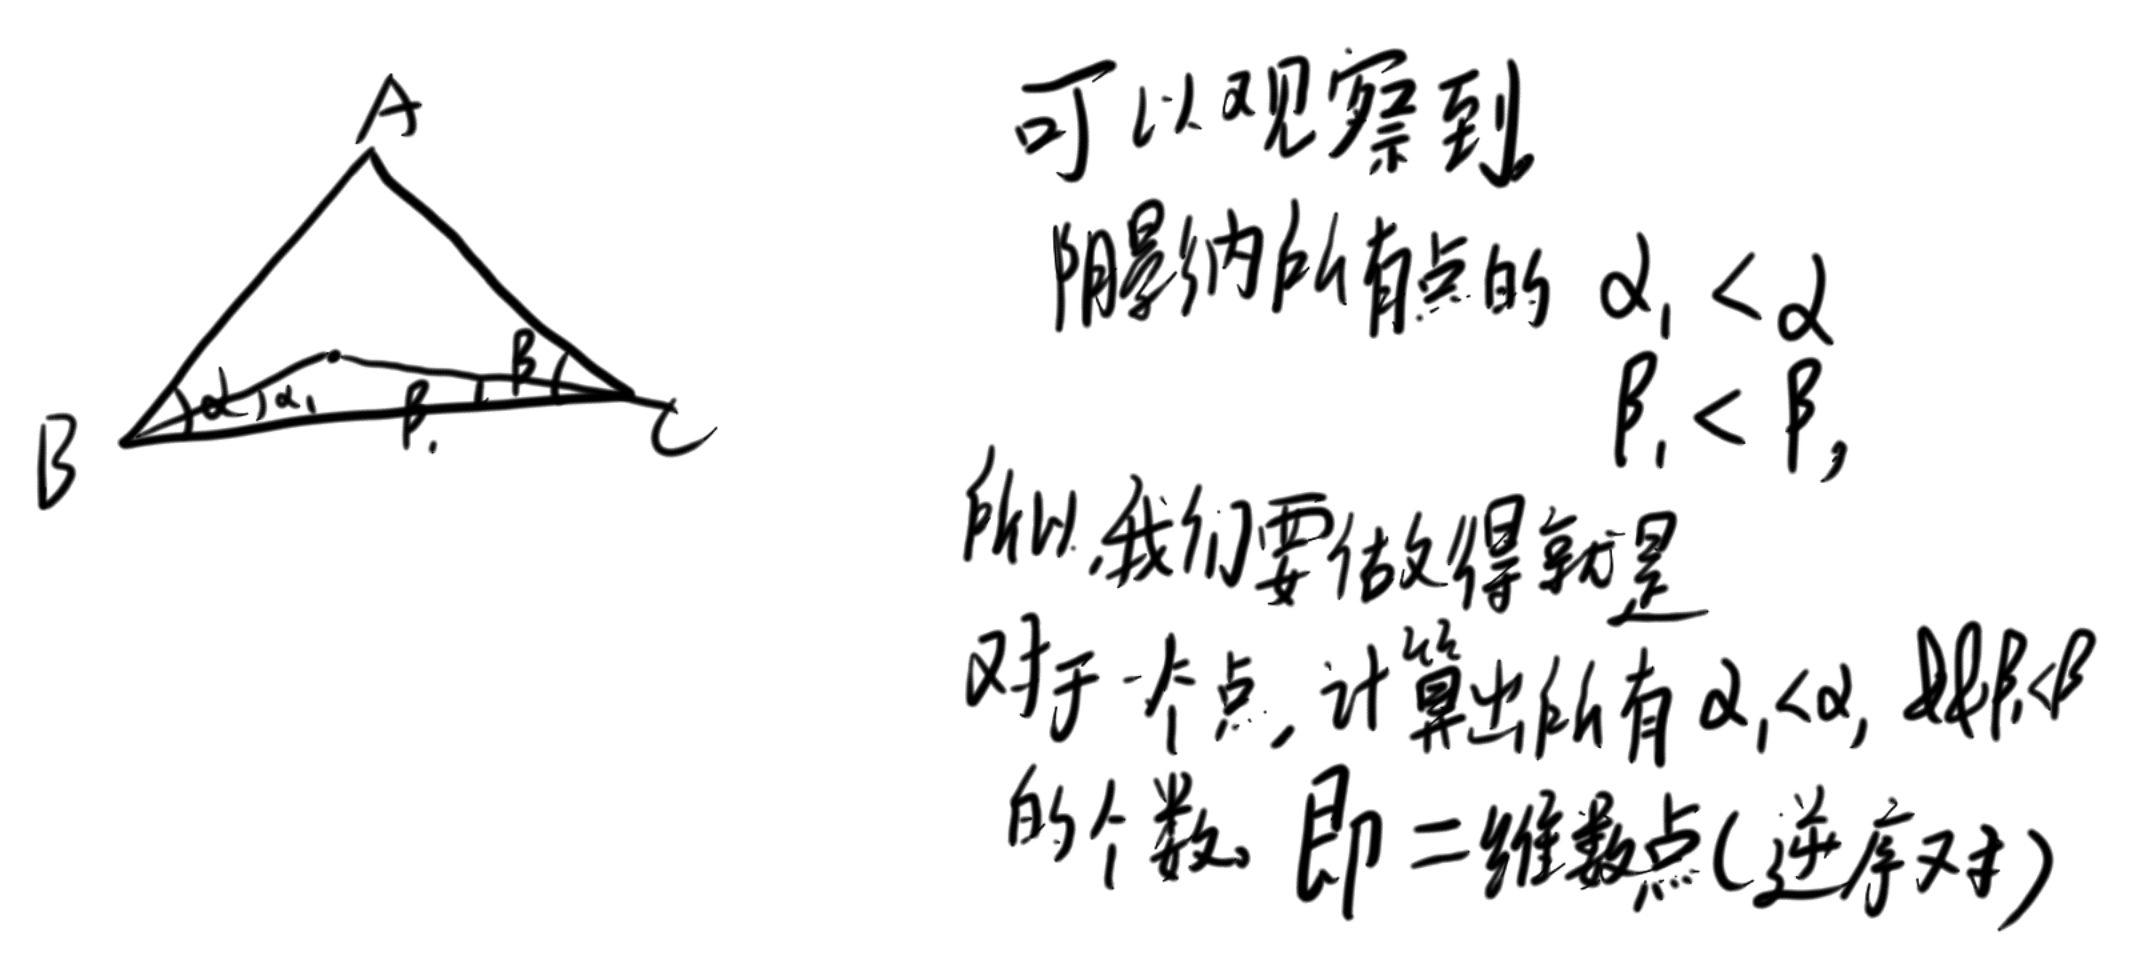 A
B
C
α
α₁
β
β₁
可以观察到,
阴影纳所有点的 α₁<α
β₁<β,
所以,我们要做得就是
对于一个点,计算出所有α₁<α, &&β₁<β
的个数。即二维数点(逆序对)